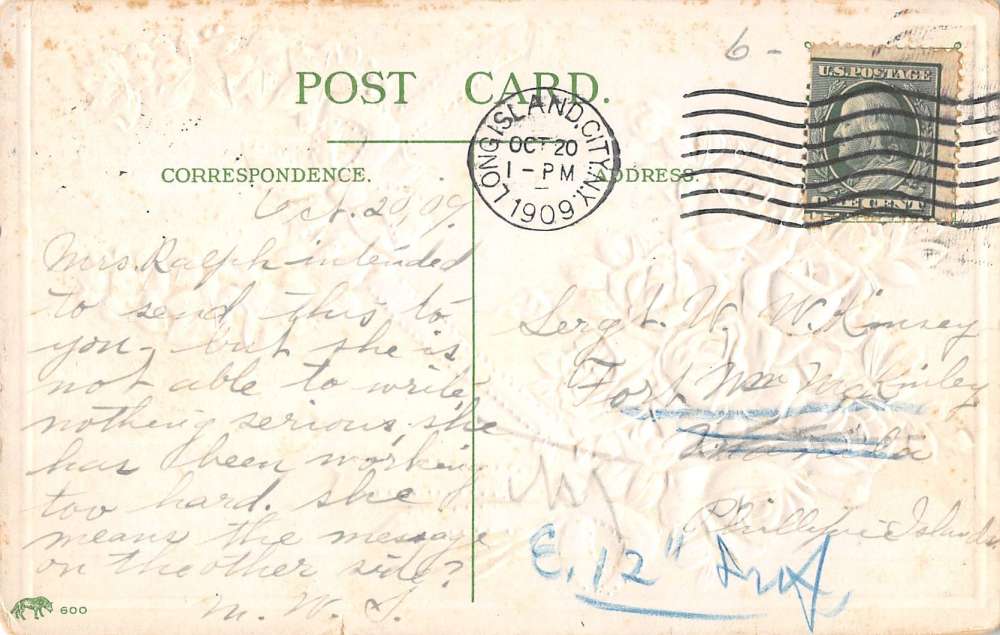 6 -
POST CARD.
U.S. POSTAGE
LONG ISLAND CITY, N.Y.
OCT 20
1 - PM
1909
CORRESPONDENCE.
ADDRESS.
Oct. 20, 09
Mrs. Ralph intended
to send this to
you, but she is
not able to write,
nothing serious, she
has been working
too hard. she
means the message
on the other side?
M. W. S.
Sergt. W. W. Kinsey
Fort Wm McKinley
Manila
Phillipi Islands
E. 12" Inf,
600